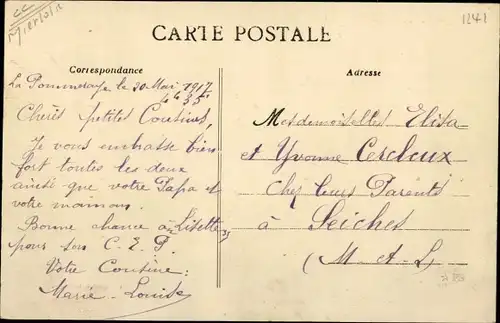 CARTE POSTALE
1242
Correspondance
Adresse
La Pommeraye le 20 Mai 1917
Chères petites Cousines,
Je vous embrasse bien
fort toutes les deux
ainsi que votre Papa et
votre maman.
Bonne chance à Lisette
pour son C. E. P.
Votre Cousine:
Marie-Louise
Mesdemoiselles Elisa
et Yvonne
Chez leurs Parents
à Seiches
(M-et-L)